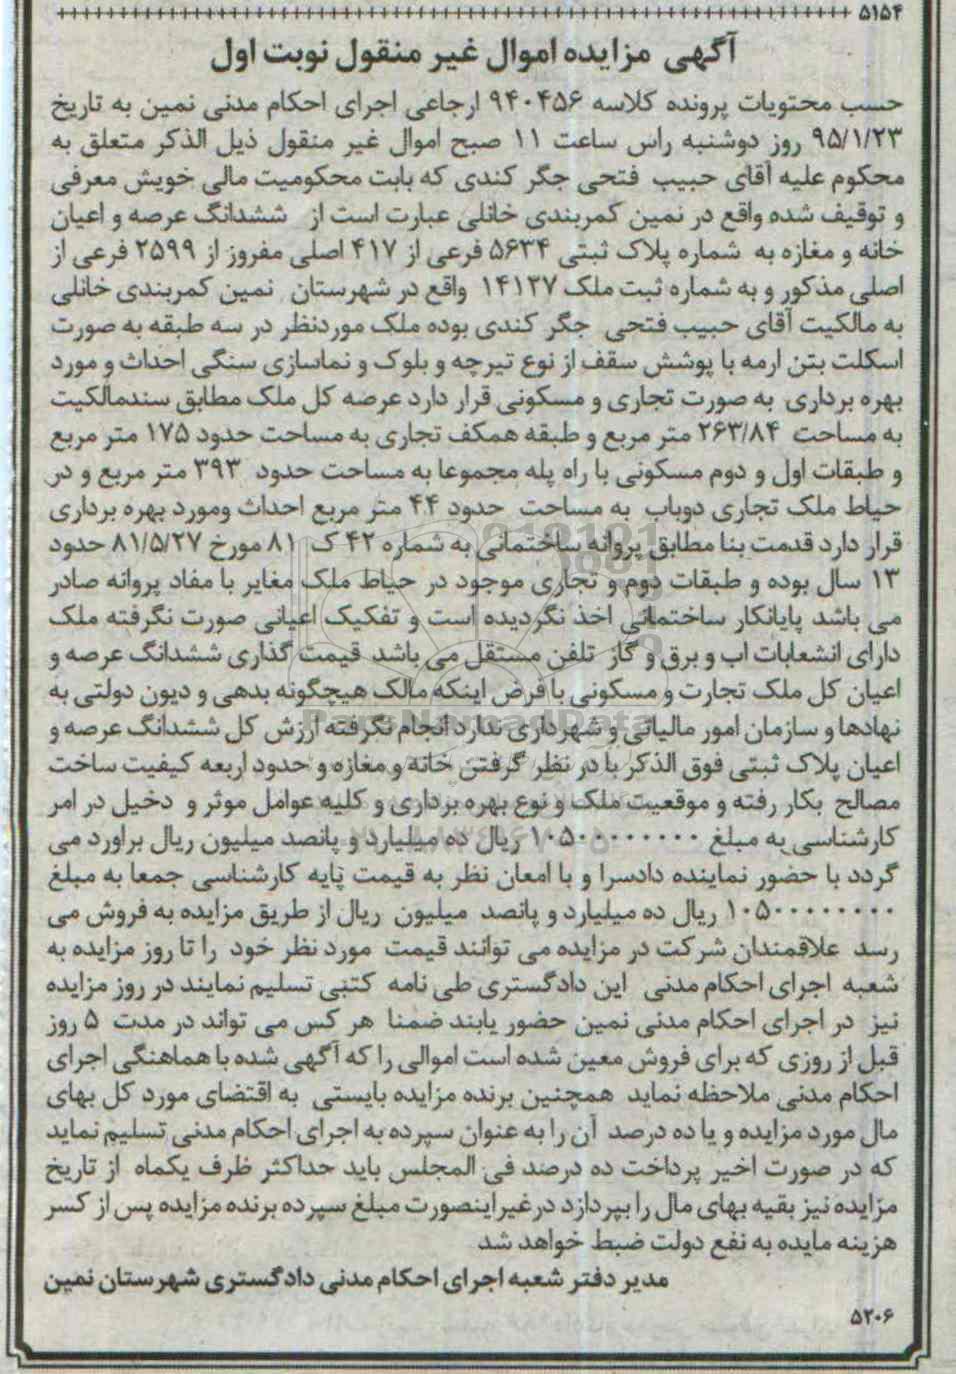 ۵۱۵۴
آگهی مزایده اموال غیر منقول نوبت اول
حسب محتویات پرونده کلاسه ۹۴۰۴۵۶ ارجاعی اجرای احکام مدنی نمین به تاریخ
۹۵/۱/۲۳ روز دوشنبه راس ساعت ۱۱ صبح اموال غیر منقول ذیل الذکر متعلق به
محکوم علیه آقای حبیب فتحی جگر کندی که بابت محکومیت مالی خویش معرفی
و توقیف شده واقع در نمین کمربندی خانلی عبارت است از ششدانگ عرصه و اعیان
خانه و مغازه به شماره پلاک ثبتی ۵۶۳۴ فرعی از ۴۱۷ اصلی مفروز از ۲۵۹۹ فرعی از
اصلی مذکور و به شماره ثبت ملک ۱۴۱۳۷ واقع در شهرستان نمین کمربندی خانلی
به مالکیت آقای حبیب فتحی جگر کندی بوده ملک موردنظر در سه طبقه به صورت
اسکلت بتن ارمه با پوشش سقف از نوع تیرچه و بلوک و نماسازی سنگی احداث و مورد
بهره برداری به صورت تجاری و مسکونی قرار دارد عرصه کل ملک مطابق سندمالکیت
به مساحت ۲۶۳/۸۴ متر مربع و طبقه همکف تجاری به مساحت حدود ۱۷۵ متر مربع
و طبقات اول و دوم مسکونی با راه پله مجموعا به مساحت حدود ۳۹۳ متر مربع و در
حیاط ملک تجاری دوباب به مساحت حدود ۴۴ متر مربع احداث ومورد بهره برداری
قرار دارد قدمت بنا مطابق پروانه ساختمانی به شماره ۴۲ ک ۸۱ مورخ ۸۱/۵/۲۷ حدود
۱۳ سال بوده و طبقات دوم و تجاری موجود در حیاط ملک مغایر با مفاد پروانه صادر
می باشد پایانکار ساختمانی اخذ نگردیده است و تفکیک اعیانی صورت نگرفته ملک
دارای انشعابات اب و برق و گاز تلفن مستقل می باشد قیمت گذاری ششدانگ عرصه و
اعیان کل ملک تجارت و مسکونی با فرض اینکه مالک هیچگونه بدهی و دیون دولتی به
نهادها و سازمان امور مالیاتی و شهرداری ندارد انجام نگرفته ارزش کل ششدانگ عرصه و
اعیان پلاک ثبتی فوق الذکر با در نظر گرفتن خانه و مغازه و حدود اربعه کیفیت ساخت
مصالح بکار رفته و موقعیت ملک و نوع بهره برداری و کلیه عوامل موثر و دخیل در امر
کارشناسی به مبلغ ۱۰۵۰۰۰۰۰۰۰۰ ریال ده میلیارد و پانصد میلیون ریال براورد می
گردد با حضور نماینده دادسرا و با امعان نظر به قیمت پایه کارشناسی جمعا به مبلغ
۱۰۵۰۰۰۰۰۰۰۰ ریال ده میلیارد و پانصد میلیون ریال از طریق مزایده به فروش می
رسد علاقمندان شرکت در مزایده می توانند قیمت مورد نظر خود را تا روز مزایده به
شعبه اجرای احکام مدنی این دادگستری طی نامه کتبی تسلیم نمایند در روز مزایده
نیز در اجرای احکام مدنی نمین حضور یابند ضمنا هر کس می تواند در مدت ۵ روز
قبل از روزی که برای فروش معین شده است اموالی را که آگهی شده با هماهنگی اجرای
احکام مدنی ملاحظه نماید همچنین برنده مزایده بایستی به اقتضای مورد کل بهای
مال مورد مزایده و یا ده درصد آن را به عنوان سپرده به اجرای احکام مدنی تسلیم نماید
که در صورت اخیر پرداخت ده درصد فی المجلس باید حداکثر ظرف یکماه از تاریخ
مزایده نیز بقیه بهای مال را بپردازد درغیراینصورت مبلغ سپرده برنده مزایده پس از کسر
هزینه مایده به نفع دولت ضبط خواهد شد
مدیر دفتر شعبه اجرای احکام مدنی دادگستری شهرستان نمین
۵۲۰۶
ParsNamadData